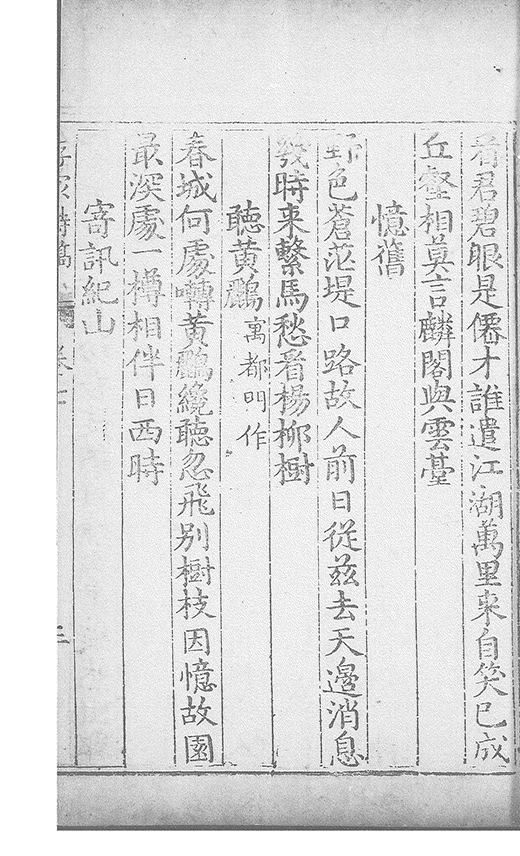 看君碧眼是僊才誰遣江湖萬里来自笑已成
丘壑相莫言麟閣與雲臺
憶舊
野色蒼茫堤口路故人前日從兹去天邉消息
幾時来繫馬愁看楊栁樹
聴黄鸝寓都門作
春城何處囀黄鸝纔聴忽飛别樹枝因憶故園
最深處一樽相伴日西時
寄訊紀山